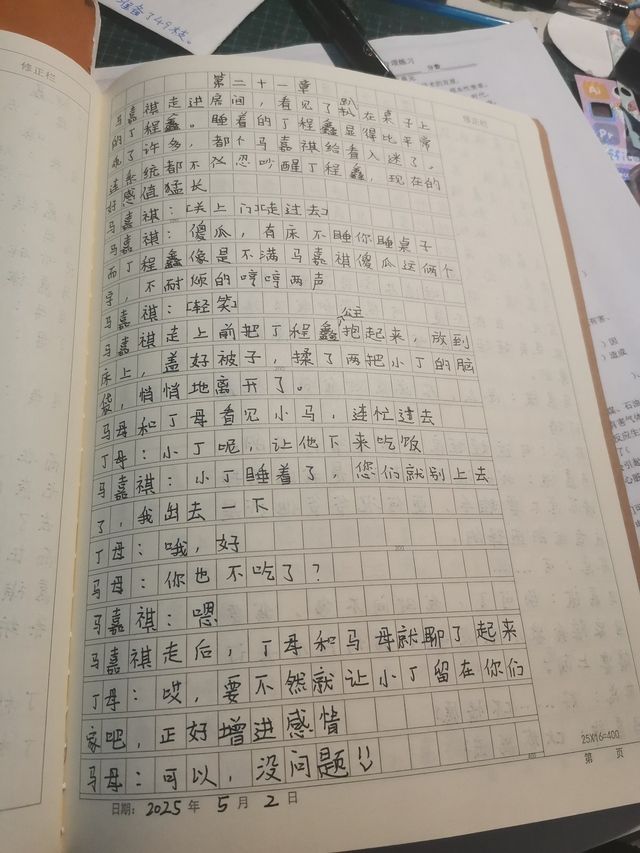 准备了49枝。
修正栏
修正栏
第二十一章
马嘉祺走进房间，看见了趴在桌子上
的丁程鑫。睡着的丁程鑫显得比平常
乖了许多，都个马嘉祺给看入迷了，
连系统都不忍吵醒丁程鑫，现在的
好感值猛长
马嘉祺：[关上门][走过去]
马嘉祺：傻瓜，有床不睡你睡桌子
而丁程鑫像是不满马嘉祺傻瓜这俩个
字，不耐烦的哼哼两声
马嘉祺：[轻笑]
马嘉祺走上前把丁程鑫公主抱起来，放到
床上，盖好被子，揉了两把小丁的脑
袋，悄悄地离开了。
马母和丁母看见小马，连忙过去
丁母：小丁呢，让他下来吃饭
马嘉祺：小丁睡着了，您们就别上去
了，我出去一下
丁母：哦，好
马母：你也不吃了？
马嘉祺：嗯
马嘉祺走后，丁母和马母就聊了起来
丁母：哎，要不然就让小丁留在你们
家吧，正好增进感情
马母：可以，没问题!!
25X16=400
第 页
日期：2025年5月2日